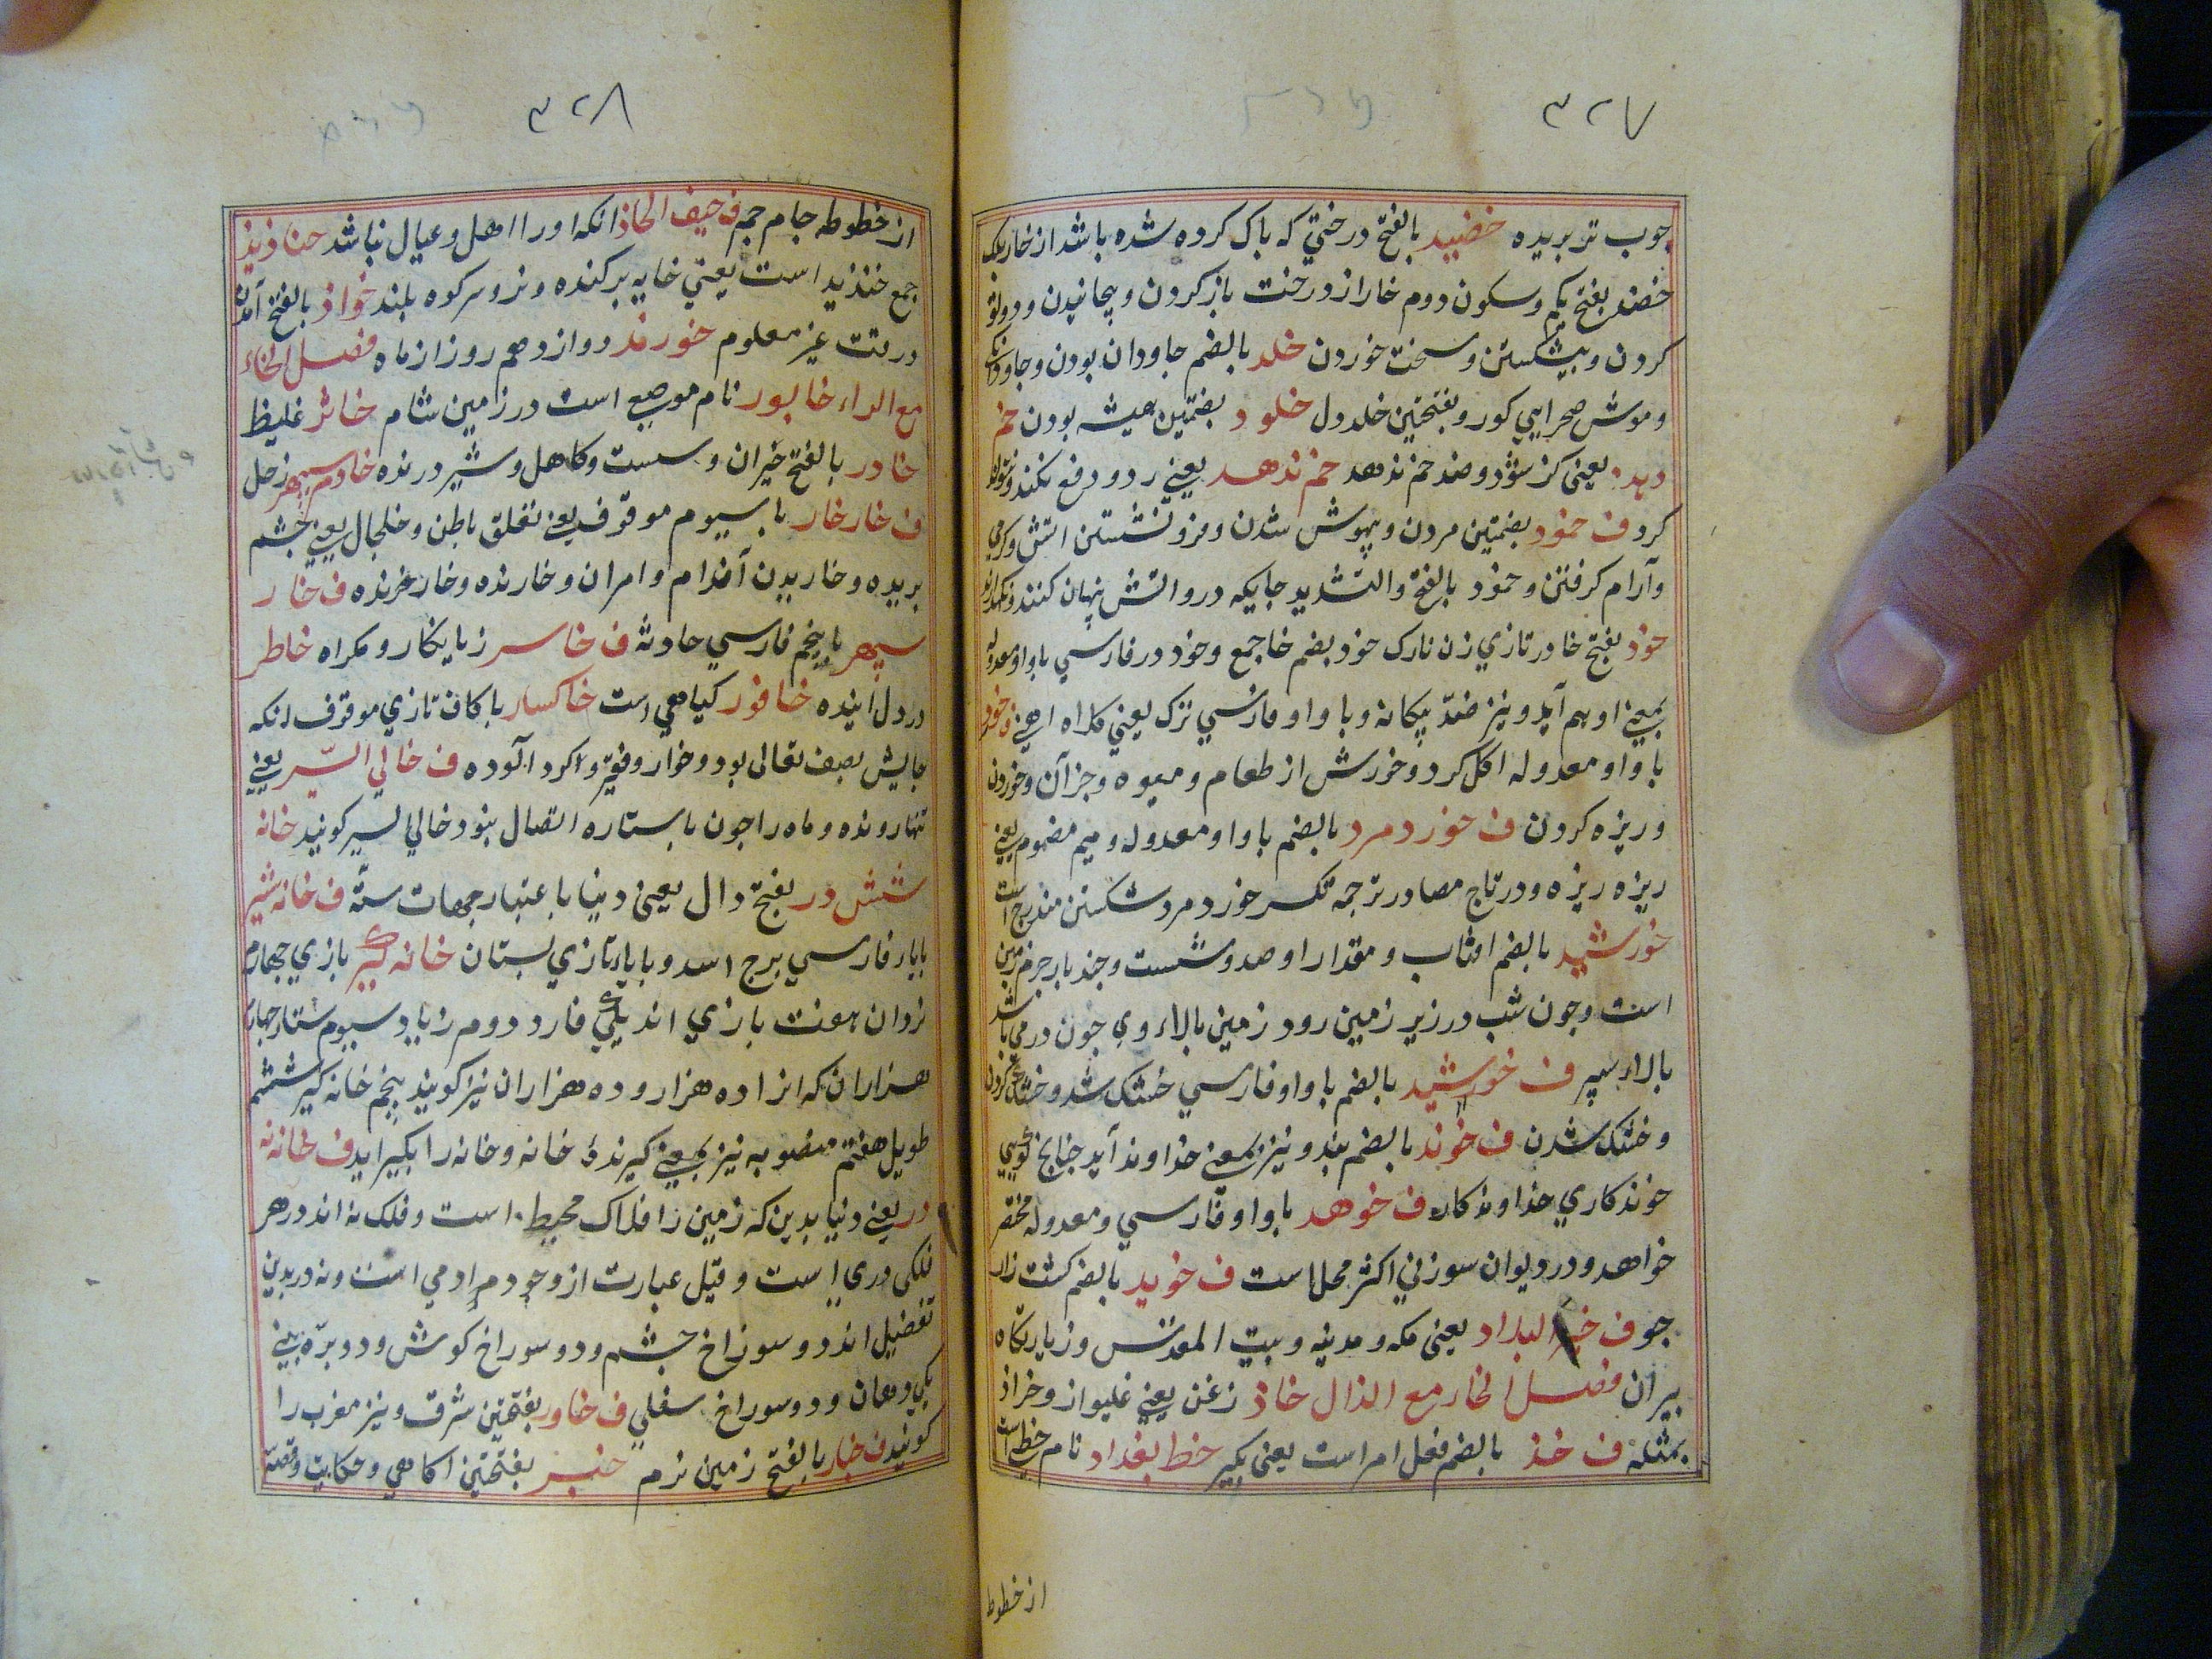 ۳۲۷
چوب تر بریده خضید بالفتح درختی که باک کرده شده باشد از خار
خضد بفتح یکم و سکون دوم خار از درخت باز کردن و پیچانیدن و دو
کردن و بشکستن و سخت خوردن خلد بالضم جاودان بودن و
و موش صحرایی کور و بفتحتین خلد دل خلود بضمتین همیشه بودن خم
دهد یعنی کژ شود و ضد خم ندهد خم ندهد یعنی رد و دفع نکند
کرد ف خمود بضمتین مردن و بیهوش شدن و فرو نشستن اتش و کرمی
و آرام کرفتن و خمود بالفتح والتشدید جایکه درو اتش پنهان کنند
خود بفتح خا در تازی زن نازک خود بضم خا جمع و خود در فارسی با واو معدوله
بمعنی او هم آید و نیز ضد بیکانه و با واو فارسی ترک یعنی کلاه اهنی ف خورد
با واو معدوله اکل کرد و خورش از طعام و میوه و جز آن و خوردن
و ریزه کردن ف خورد مرد بالضم با واو معدوله و میم مضموم یعنی
ریزه ریزه و در تاج مصادر ترجمه تکسر خورد مرد شکستن مندرج است
خورشید بالضم افتاب و مقدار او صد و شست و چند بار جرم زمین
است و چون شب در زیر زمین رود زمین بالاء وی چون درمی باشد
بالاء سپر ف خوشید بالضم با واو فارسی خشک شد و خشک کردن
و خشک شدن ف خوند بالضم بند و نیز بمعنی خداوند آید چنانچ کویی
خوندکاری خداوندکار ف خوهد با واو فارسی و معدوله مختصر
خواهد و در دیوان سوزنی اکثر محل است ف خوید بالضم کشت زار
جو ف خیر البلاد یعنی مکه و مدینه و بیت المقدس و زیارتکاه
پیران فصل الخاء مع الذال خاذ زغن یعنی غلیواز و خراذ
بمثله ف خذ بالضم فعل امر است یعنی بکیر خط بغداد نام خطی است
از خطوط
۳۲۸
از خطوطه جام جم ف خفیف الحاذ انکه او را اهل و عیال نباشد خناذیذ
جمع خنذیذ است یعنی خایه برکنده و نر و سر کوه بلند خواذ بالفتح آمدن
در تب غیر معلوم خورمذ دوازدهم روز از ماه فصل الخاء
مع الراء خابور نام موضعی است در زمین شام خاثر غلیظ
خادر بالفتح حیران و سست و کاهل و شیر درنده خادم سپهر زحل
ف خارخار با سیوم موقوف یعنی تعلق باطن و خلجال یعنی چشم
بریده و خاریدن آندام و امران و خارنده و خار خرنده ف خار
سپهر با پنجم فارسی حادثه ف خاسر زیانکار و کمراه خاطر
در دل اینده خافور کیاهی است خاکسار با کاف تازی موقوف انکه
جایش بصف نعالی بود و خوار و فقیر و کرد آلوده ف خالی السیر یعنی
تنها رونده و ماه را چون با ستاره اتصال نبود خالی السیر کویند خانه
شش در بفتح دال یعنی دنیا باعتبار جهات سته ف خانه شیر
بایاء فارسی برج اسد و بایاء تازی پستان خانه کیر بازی چهارم
نردان هفت بازی اند یکی فارد دوم زیاد سیوم ستار چهارم
هزاران که انرا ده هزار و ده هزاران نیز کویند پنجم خانه کیر ششم
طویل هفتم منصوبه نیز بمعنی کیرندهٔ خانه و خانه را بکیر اید ف خانه نه
در یعنی دنیا بدین که زمین را افلاک محیط است و فلک نه اند در هر
فلکی دری است و قیل عبارت از وجود مرادمی است و نه در بدین
تفضیل اند دو سوراخ چشم و دو سوراخ کوش و دو پره بینی
یکی دهان و دو سوراخ سفلی ف خاور بفتحتین شرق و نیز مغرب را
کویند ف خبار بالفتح زمین نرم خبر بفتحتین اکاهی و حکایت و قصه